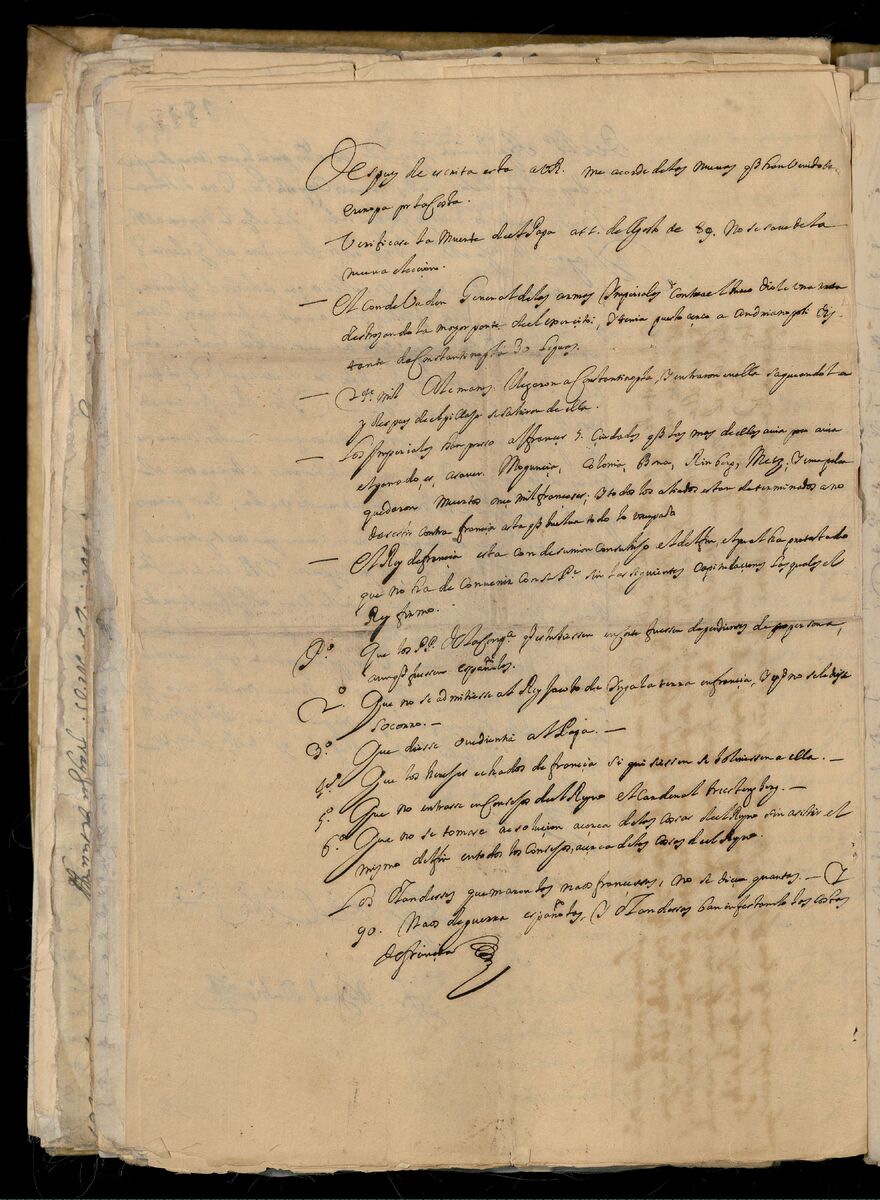 Despues de escrita esta a V.R. me acorde de las nuevas q̃ han venido de
europa por la Costa.
Verificase la Muerte de el Papa a 12. de Agosto de 89. No se save de la
nueva eleccion.
— El Conde Vaden General de las armas Imperiales contra el turco diole una rota
destrozandole la mayor parte de el exercito, y tenia puesto cerco a Andrianopoli dis-
tante de Constantinopla 30 leguas.
— mil Alemanes llegaron a Constantinopla, y entraron en ella saqueandola
y despues de el pillage se salieron de ella.
— Los Imperiales han preso al frances 5. Ciudades q̃ las mas de ellas avia
el ganado es, a saver. Moguncia, Colonia, Bona, Rinberg, Metz, y
quedaron muertos once mil franceses; y todos los aliados estan determinados a no
desistir contra francia asta q̃ buelva todo lo usurpado
— El Rey de francia esta con desunion con su hijo el delfin, el qual ha protestado
que no ha de convenir con su P.e sin las siguientes Capitulaciones las quales el
Rey firmo.
1.º Que los PP. de la Comp.a q̃ estubiessen en Corte fuessen dependientes de persona,
aunq̃ fuessen españoles.
2.º Que no se admitiesse al Rey Jacobo de Ingalaterra en francia, y q̃ no se le diesse
socorro. —
3.º Que diesse ovediencia al Papa. —
4.º Que los hereges echados de francia si quisiessen se bolviessen a ella. —
5.º Que no entrasse en Consejo de el Reyno el Cardenal furstemberg. —
6.º Que no se tomase resolucion acerca de las cosas de el Reyno sin asistir el
mismo delfin en todos los Consejos, acerca de las cosas de el Reyno.
Los Olandesses quemaron los naos francesses, no se dice quantas. — Y
90. Naos de guerra españolas, y Olandessas han infestando las costas
de francia